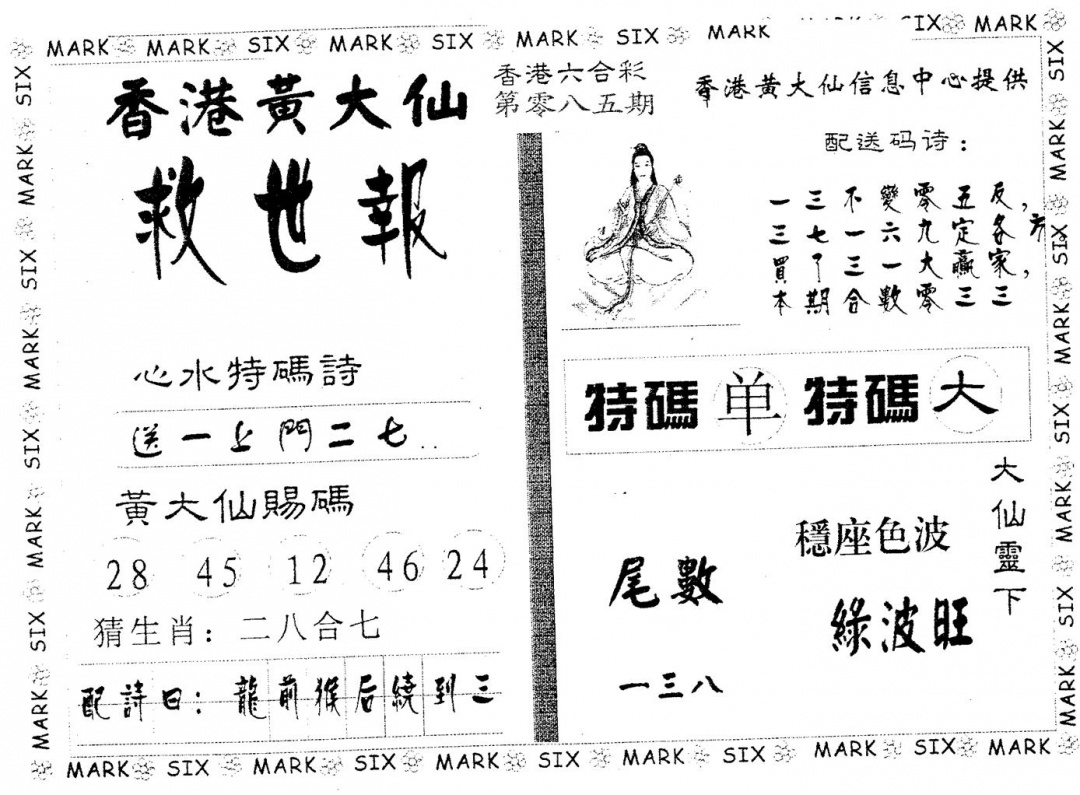 MARK MARK SIX MARK SIX MARK SIX MARK SIX MARK
香港黃大仙
救世報
香港六合彩
第零八五期
香港黃大仙信息中心提供
配送码诗：
一三不變零五反，
三七一六九定各方
買了三一大贏家，
本期合數零三三
心水特碼詩
送一上門二七..
黃大仙賜碼
28 45 12 46 24
猜生肖：二八合七
配詩曰：龍前猴后繞到三
特碼单 特碼大
大仙靈下
穩座色波
綠波旺
尾數
一三八
MARK SIX MARK SIX MARK SIX MARK SIX
MARK SIX MARK SIX MARK SIX MARK SIX
MARK SIX MARK SIX MARK SIX MARK SIX MARK SIX MARK